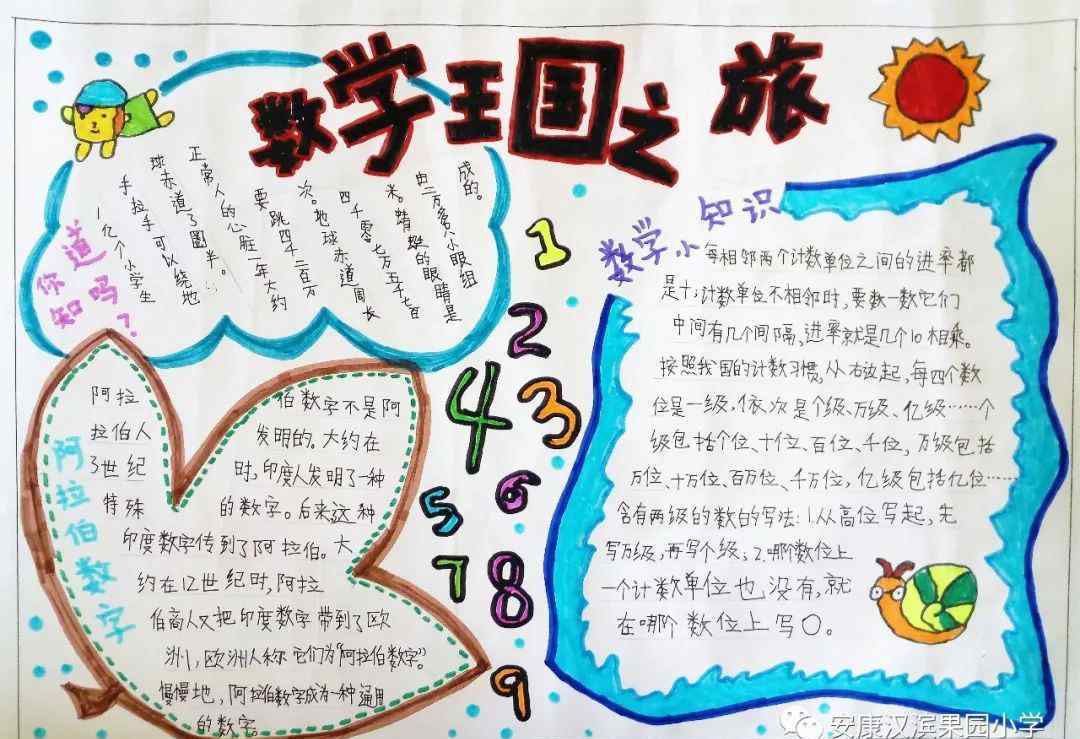 数学王国之旅
你知道吗?
1亿个小学生
手拉手可以绕地
球赤道3圈半。
正常人的心脏一年大约
要跳四千二百万
次。地球赤道周长
四千零七万五千七百
米。蜻蜓的眼睛是
由二万多只小眼组
成的。
阿拉伯数字
阿拉 伯数字不是阿
拉伯人 发明的。大约在
3世纪 时,印度人发明了一种
特殊 的数字。后来这种
印度数字传到了阿拉伯。大
约在12世纪时,阿拉
伯商人又把印度数字带到了欧
洲,欧洲人称它们为“阿拉伯数字”。
慢慢地,阿拉伯数字成为一种通用
的数字。
1
2
4 3
5 6
7 8
9
数学小知识
每相邻两个计数单位之间的进率都
是十;计数单位不相邻时,要数一数它们
中间有几个间隔,进率就是几个10相乘。
按照我国的计数习惯,从右边起,每四个数
位是一级,依次是个级、万级、亿级……个
级包括个位、十位、百位、千位,万级包括
万位、十万位、百万位、千万位,亿级包括亿位……
含有两级的数的写法:1.从高位写起,先
写万级,再写个级;2.哪个数位上
一个计数单位也没有,就
在哪个数位上写0。
安康汉滨果园小学